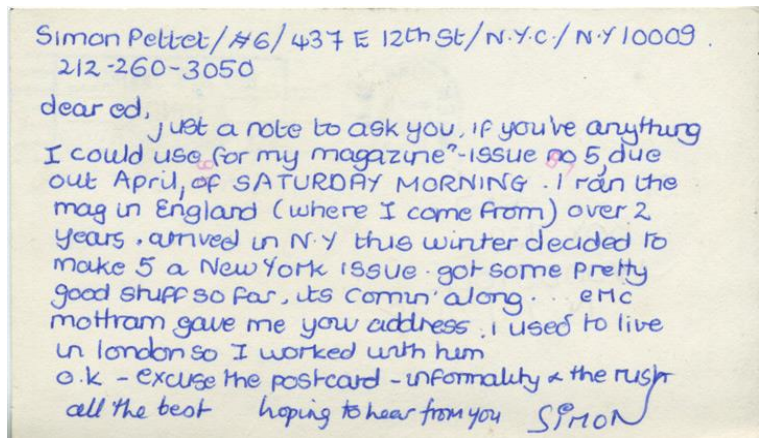 Simon Pettet/#6/437 E 12th St/N.Y.C./N.Y 10009.
212-260-3050
dear ed,
just a note to ask you, if you've anything
I could use for my magazine"-issue no 5, due
out April, of SATURDAY MORNING. I ran the
mag in England (where I come from) over 2
years. arrived in N.Y this winter decided to
make 5 a New York issue. got some pretty
good stuff so far, its comin' along... eric
mottram gave me your address. i used to live
in london so I worked with him
o.k - excuse the postcard - informality & the rush
all the best hoping to hear from you SIMON